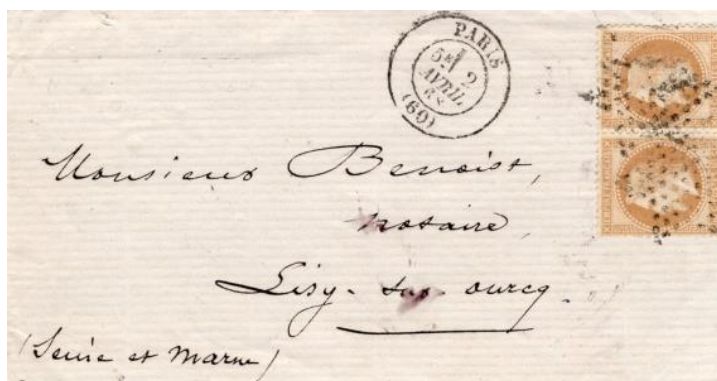 PARIS
5E 2
AVRIL
68
(60)
Monsieur Benoist,
notaire,
Lisy-sur-ourcq.
(Seine et Marne)